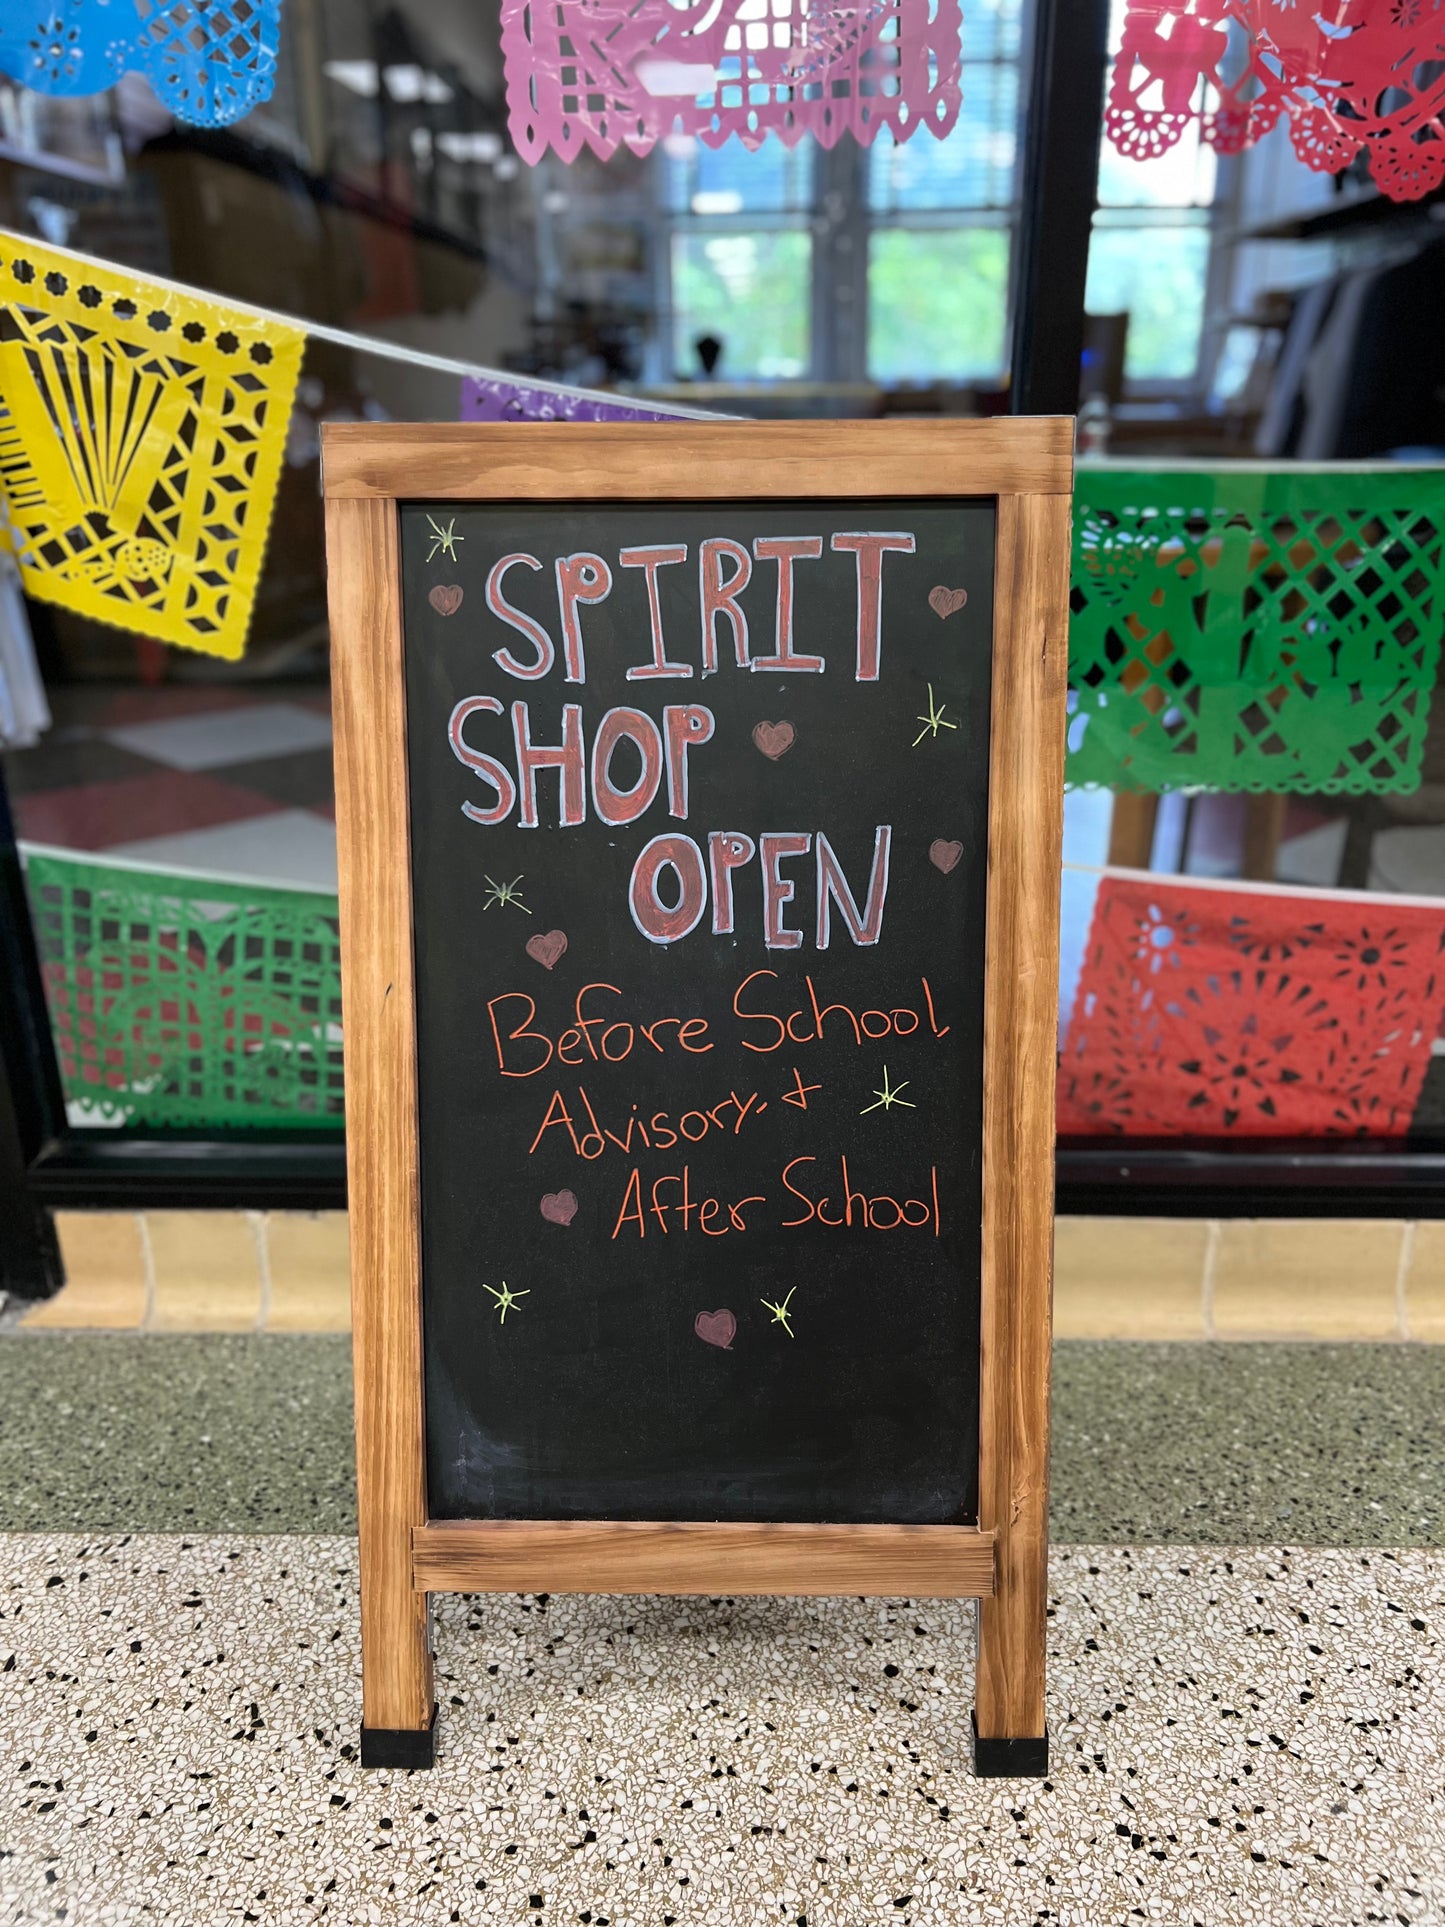 SPIRIT
SHOP
OPEN
Before School,
Advisory, +
After School